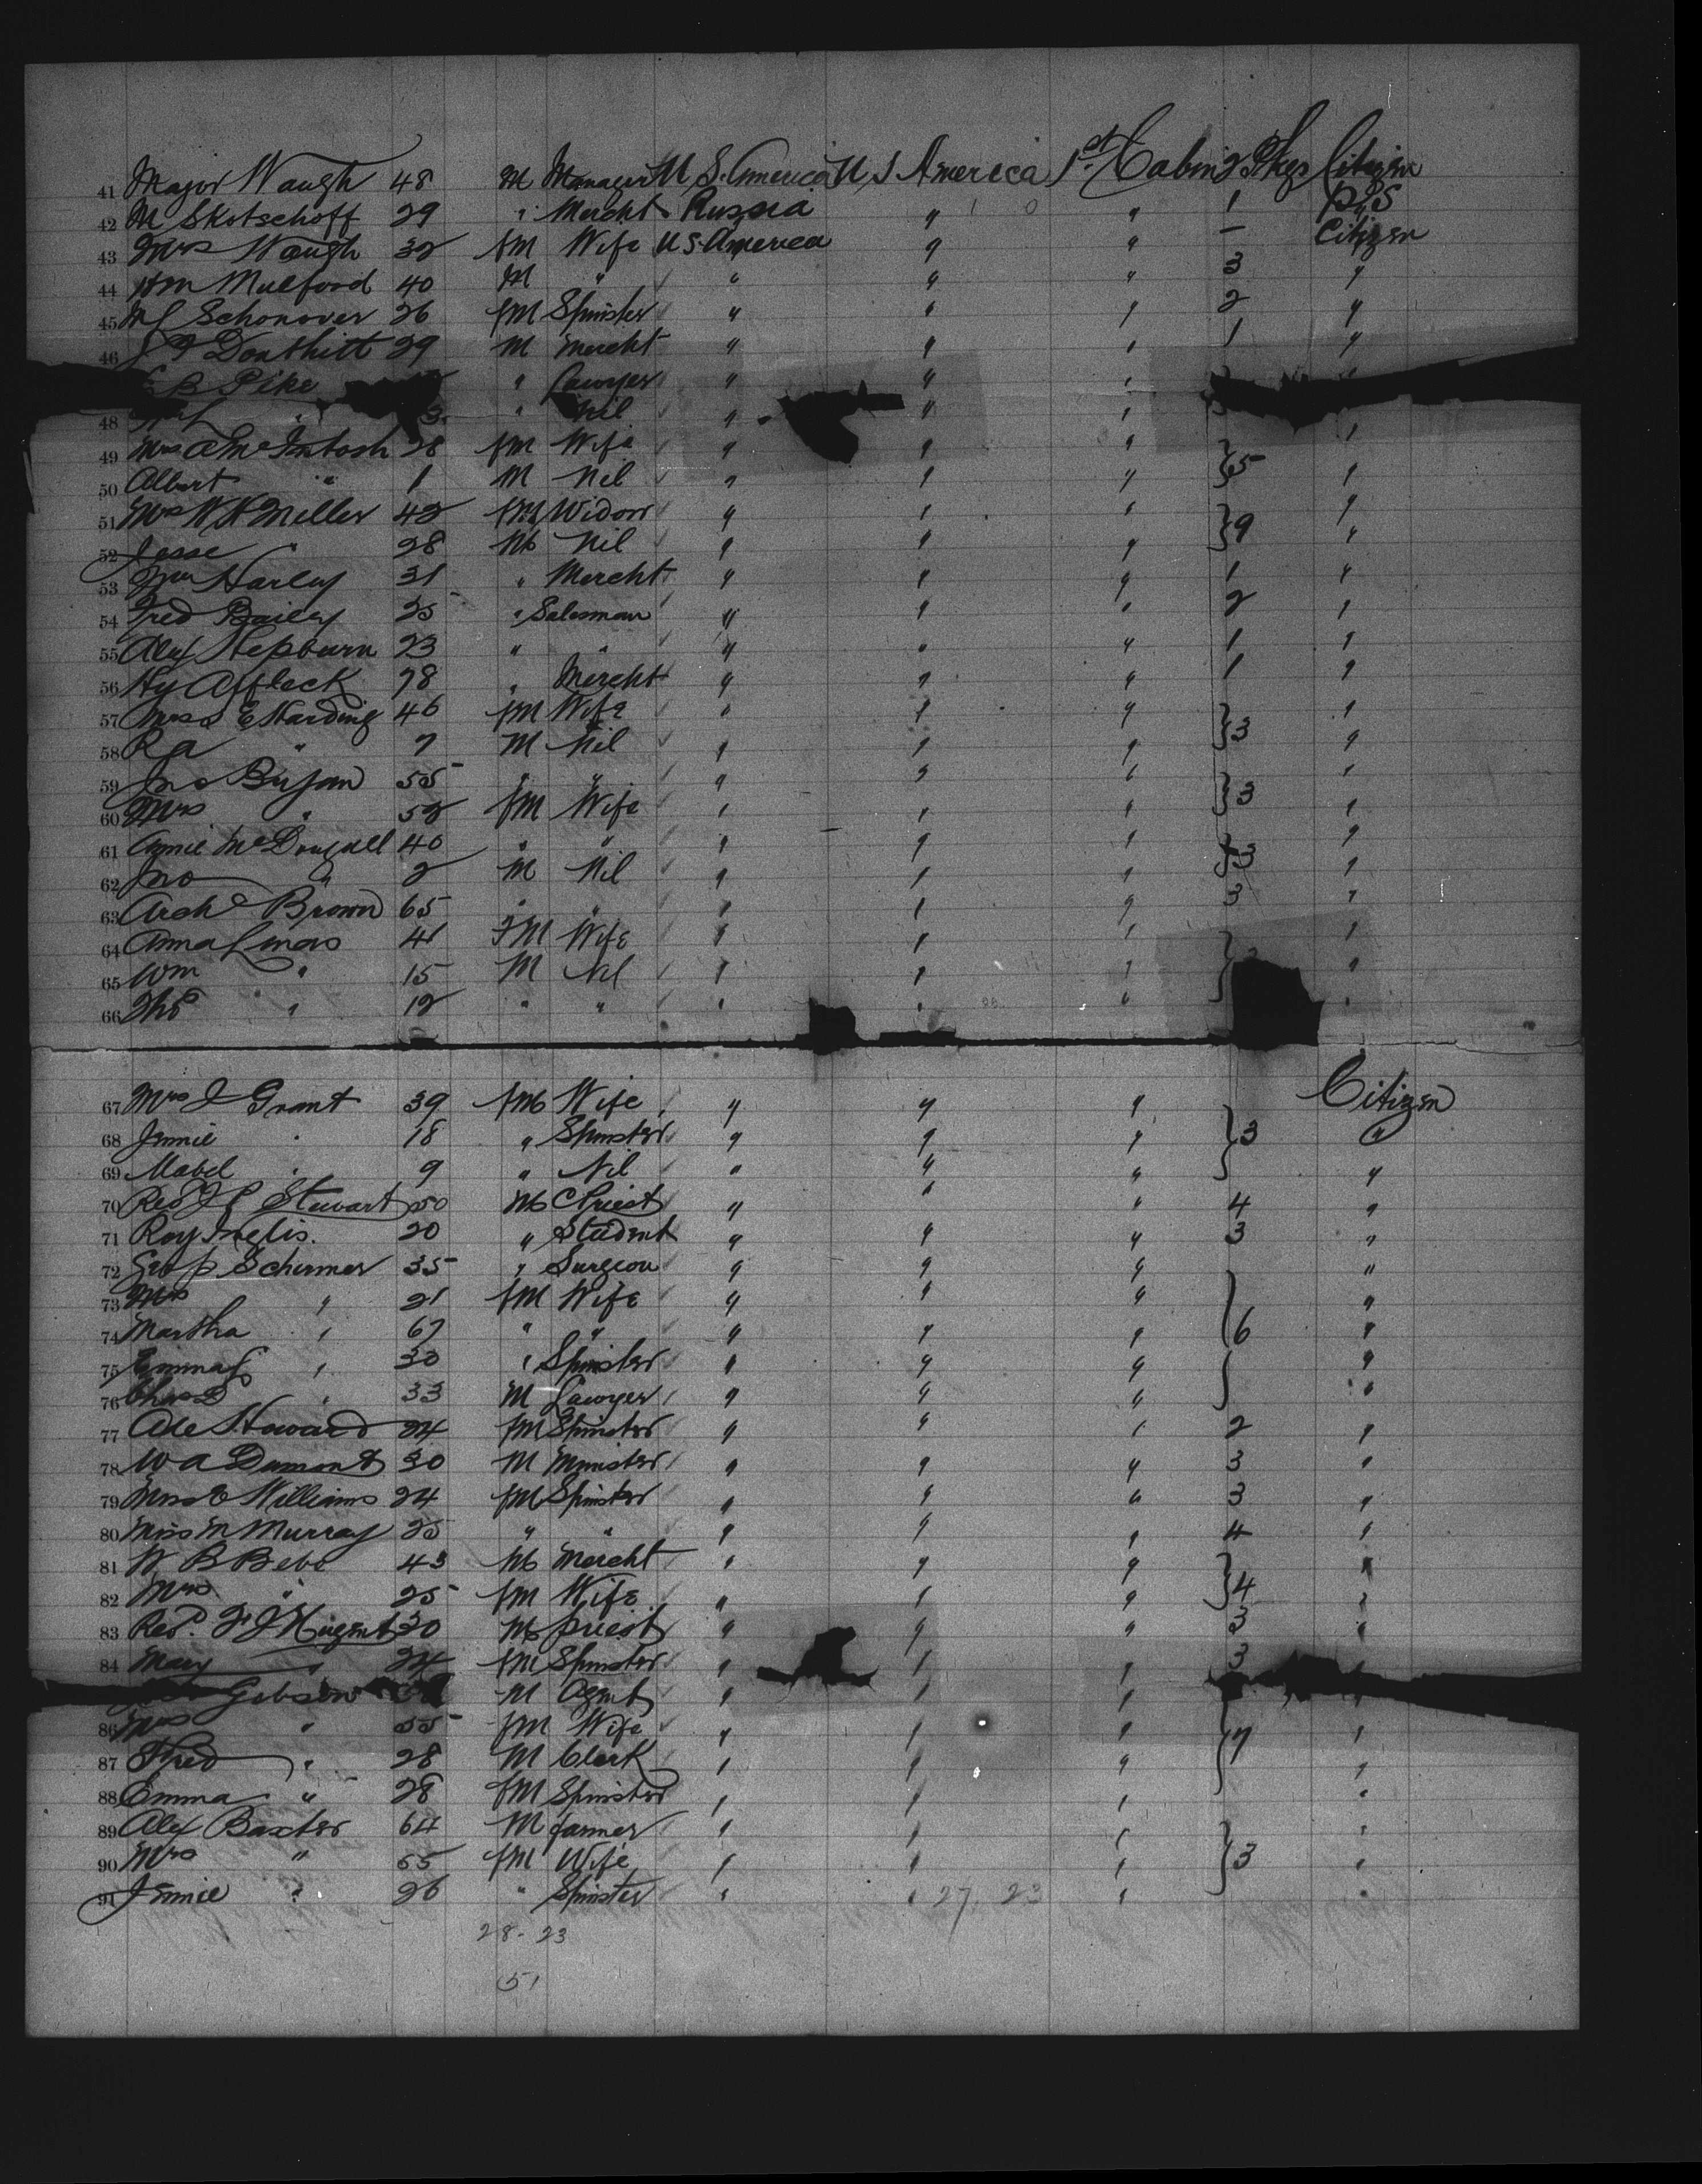 41 Major Waugh 48 M Manager U S. America U S America 1st Cabin 2 Pkgs Citizen
42 M Skotschoff 29 " Mercht Russia " " 1
43 Mrs Waugh 32 fM Wife U S. America " " — Citizen
44 Mulford 40 M " " " " 3 "
45 Schonover 26 fM Spinster " " " 2 "
46 Douthitt 29 M Mercht " " " 1 "
B Pike " Lawyer " " "
48 " Nil " " "
49 Mrs A McIntosh 28 fM Wife " " " } 5 "
50 Albert " 1 M Nil " " " "
51 Mrs W H Miller 42 fM Widow " " " } 9 "
52 Jesse " 28 M Nil " " " "
53 Harley 31 " Mercht " " " 1 "
54 Fred Bailey 25 " Salesman " " " 2 "
55 Alex Hepburn 23 " " " " " 1 "
56 Hy Affleck 28 " Mercht " " " 1 "
57 E Harding 46 fM Wife " " " } 3 "
58 R a " 7 M Nil " " " "
59 Jno 55 " " " " " } 3 "
60 Mrs " 52 fM Wife " " " "
61 Annie McDougall 40 " " " " " } 3 "
62 Jno " 2 M Nil " " " "
63 Archd Brown 65 " " " " " 3 "
64 Anna 41 FM Wife " " " } "
65 Wm " 15 M Nil " " " "
66 Thos " 12 " " " " " "
67 Mrs J Grant 39 fM Wife " " " } 3 Citizen
68 Jennie " 18 " Spinster " " " "
69 Mabel " 9 " Nil " " " "
70 Revd J C Stewart 50 M Priest " " " 4 "
71 Roy Inglis. 20 " Student " " " 3 "
72 Geo P Schirmer 35 " Surgeon " " " "
73 Mrs " 21 fM Wife " " " } 6 "
74 Martha " 67 " " " " " "
75 Emma " 30 " Spinster " " " "
76 Chas D " 33 M Lawyer " " " "
77 Howard 24 fM Spinster " " " 2 "
78 W A Dumont 30 M Minister " " " 3 "
79 Miss E Williams 24 fM Spinster " " " 3 "
80 Miss M Murray 25 " " " " " 4 "
81 W B Bebe 43 M Mercht " " " } 4 "
82 Mrs " 25 fM Wife " " " "
83 Revd. F J Nugent 30 M priest " " " 3 "
84 Mary " 24 fM Spinster " " " 3 "
Gibson M Agent " " " "
86 Mrs " 55 fM Wife " " " } 7 "
87 Fred " 28 M Clerk " " " "
88 Emma " 28 fM Spinster " " " "
89 Alex Baxter 64 M farmer " " " } 3 "
90 Mrs " 55 fM Wife " " " "
91 Jennie " 26 " Spinster " " 27. 23 " "
28 - 23
51